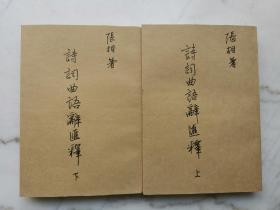 張相著
詩詞曲語辭匯釋
上
張相著
詩詞曲語辭匯釋
下